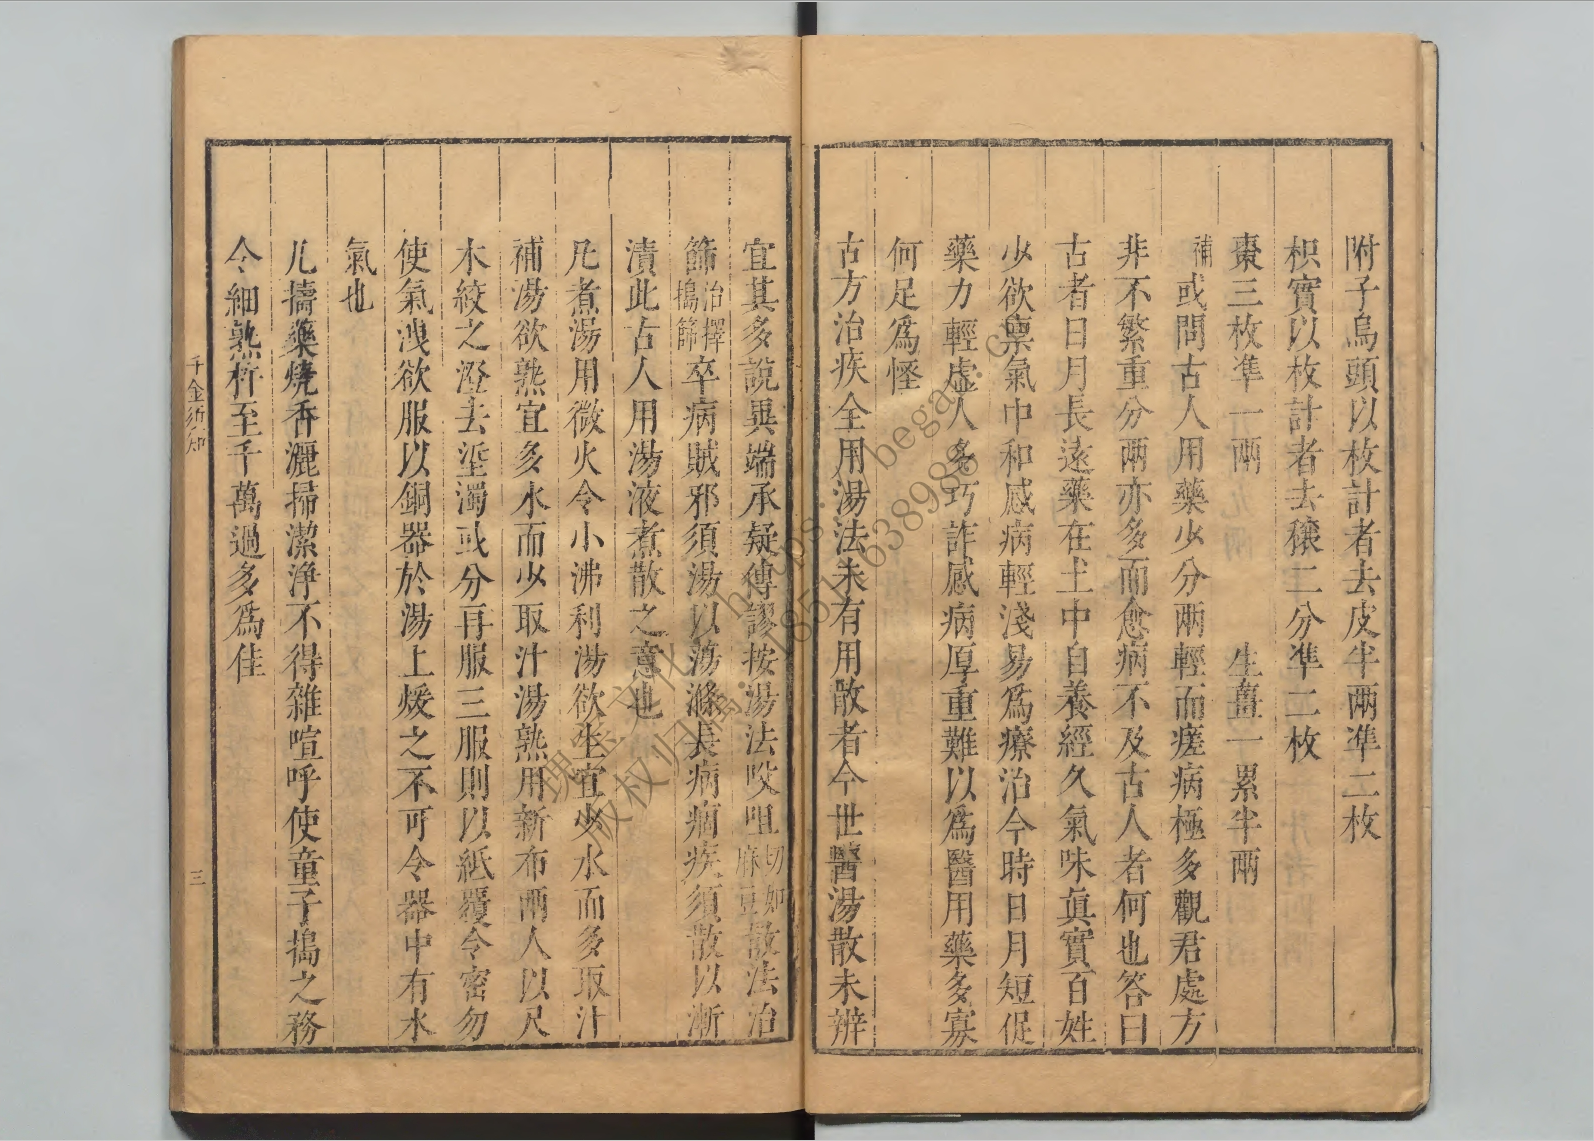 附子烏頭以枚計者去皮半兩準二枚
枳實以枚計者去穰二分準二枚
棗三枚準一兩　生薑一累半兩
補或問古人用藥少分兩輕而瘥病極多觀君處方
非不繁重分兩亦多而愈病不及古人者何也答曰
古者日月長遠藥在土中自養經久氣味真實百姓
少欲稟氣中和感病輕淺易爲療治今時日月短促
藥力輕虛人多巧詐感病厚重難以爲醫用藥多寡
何足爲怪
古方治疾全用湯法未有用散者今世醫湯散未辨
宜其多說異端承疑傳謬按湯法㕮咀切如麻豆散法治
篩治擇搗篩卒病賊邪須湯以蕩滌長病痼疾須散以漸
漬此古人用湯液煮散之意也
凡煮湯用微火令小沸利湯欲生宜少水而多取汁
補湯欲熟宜多水而少取汁湯熟用新布兩人以尺
木絞之澄去垽濁或分再服三服則以紙覆令密勿
使氣洩欲服以銅器於湯上煖之不可令器中有水
氣也
凡擣藥燒香灑掃潔淨不得雜喧呼使童子搗之務
令細熟杵至千萬過多爲佳
千金須知
三